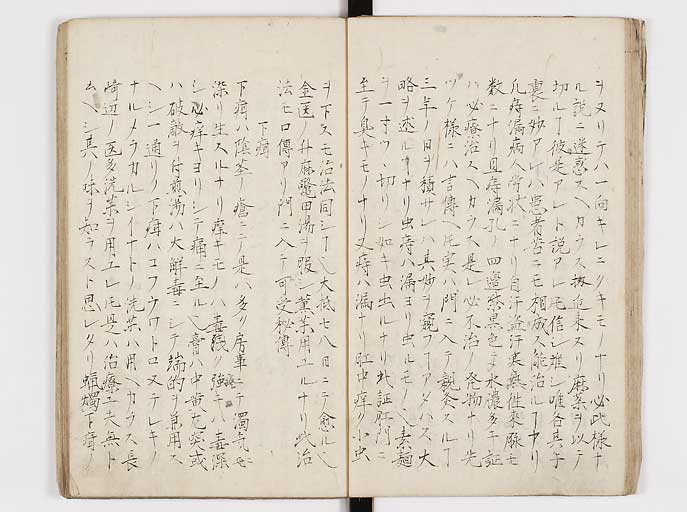 ヲヌリテハ一向キレニクキモノナリ必此様ナ
ル説ニ迷惑スヘカラス扨近来スリ麻薬ヲ以テ
切ルヿ彼是アレト説アレ𪜈信シ難シ唯各其
裏ニ妙アレハ患者皆ニモ相成ス能治ルヿナリ
凡痔漏病人ノ状ニナリ自汗盗汗寒熱往来脈モ
数ニナリ且痔漏孔ノ四邉紫黒色ニ水濃多キ証
ハ必療治スヘカラス是レ必不治ノ発物ナリ先
ツケ様ニハ言傳ヘ𪜈実ハ門ニ入テ親炙スルヿ
三年ノ日ヲ積サレハ其妙ヲ窺フヿアタハス大
略ヲ述ルヿナリ虫痔ハ漏ヨリ虫ルモノ也素麺
ヲ一寸ツヽ切リシ如キ虫出ルナリ此証肛門ニ
至テ臭キモノナリ又痔ハ漏ナリ肛中痒ク小虫
ヲ下スモ治法同シヿ也大抵七八日ニテ愈ル也
金匱ノ升麻鼈甲湯ヲ服シ薫薬用ユルナリ此治
法モ口傳アリ門ニ入テ可受秘傳
下疳
下疳ハ陰茎ノ瘡ニテ是ハ多ク房事ニテ濁気ニ
染リ生スルナリ痒キモノハ毒浅ク強キハ毒深
シ必痒キヨリシテ痛ニ至ル也膏ハ中黄左突或
ハ破敵ヲ付煎湯ハ大解毒ニシテ端的ヲ兼用ス
ヘシ一通リノ下疳ハコフウワトロヌステレキノ
ナルメラカルシイナトノ洗薬ハ用ヘカラス長
崎辺ノ医多洗薬ヲ用ユレ𪜈是ハ治療工夫無ト
云ヘシ其ノ味ヲ知ラスト思レタリ蝋燭下疳ノ